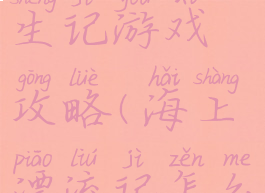 shēng jì yóu xì
生记游戏
gōng lüè hǎi shàng
攻略(海上
piāo liú jì zěn me
漂流记怎么